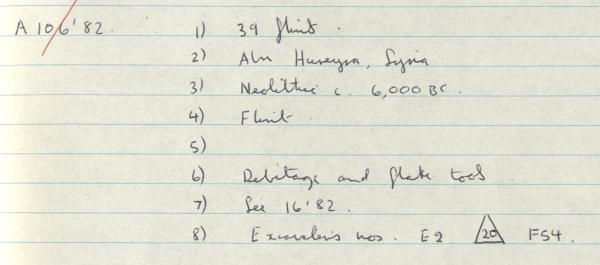 A 106'82. 1) 39 flint.
2) Abu Hureyra, Syria
3) Neolithic c. 6,000 BC.
4) Flint
5)
6) Debitage and flake tools
7) See 16'82.
8) Excavators nos. E2 20 F54.